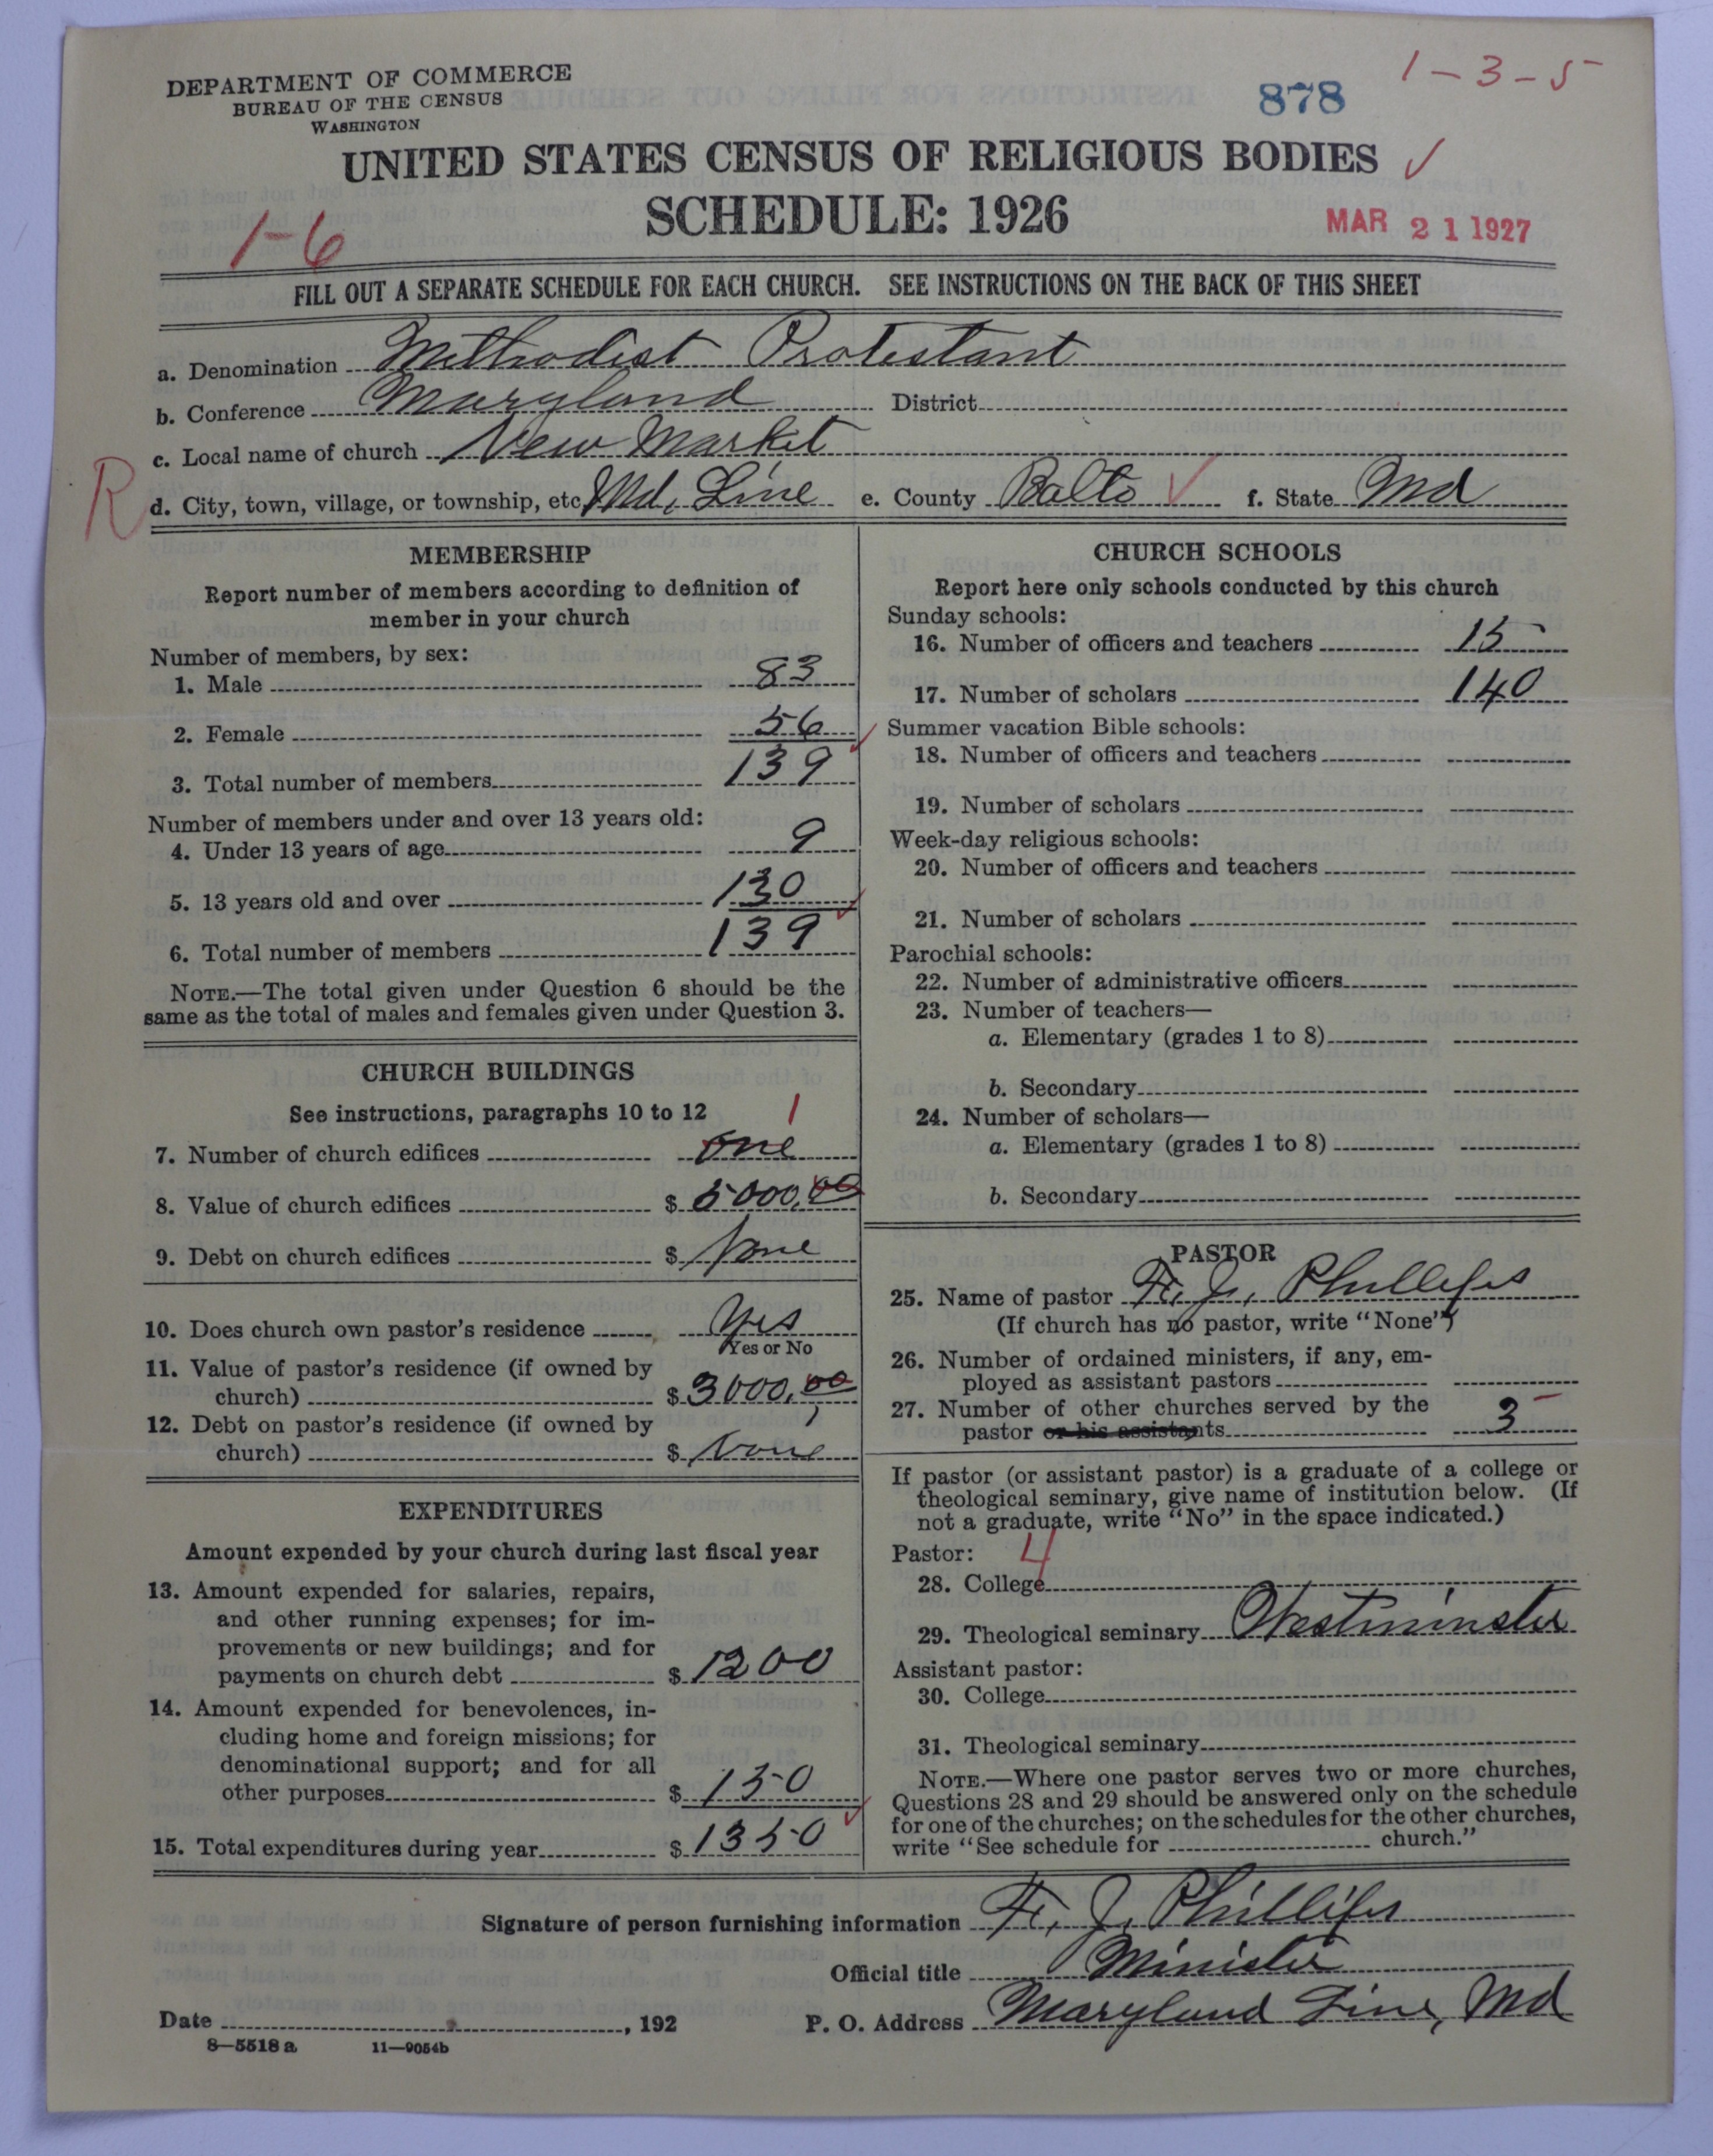 DEPARTMENT OF COMMERCE
BUREAU OF THE CENSUS
WASHINGTON
878
1-3-5
UNITED STATES CENSUS OF RELIGIOUS BODIES ✓
SCHEDULE: 1926
1-6
MAR 21 1927
FILL OUT A SEPARATE SCHEDULE FOR EACH CHURCH. SEE INSTRUCTIONS ON THE BACK OF THIS SHEET
a. Denomination Methodist Protestant
b. Conference Maryland District
c. Local name of church New Market
R
d. City, town, village, or township, etc. Md. Line e. County Balto ✓ f. State Md
MEMBERSHIP
Report number of members according to definition of
member in your church
Number of members, by sex:
1. Male 83
2. Female 56
3. Total number of members 139
Number of members under and over 13 years old:
4. Under 13 years of age 9
5. 13 years old and over 130
6. Total number of members 139
NOTE.—The total given under Question 6 should be the
same as the total of males and females given under Question 3.
CHURCH BUILDINGS
See instructions, paragraphs 10 to 12
1
7. Number of church edifices one
8. Value of church edifices $ 5000.00
9. Debt on church edifices $ None
10. Does church own pastor's residence Yes
Yes or No
11. Value of pastor's residence (if owned by
church) $ 3000.00
12. Debt on pastor's residence (if owned by
church) $ None
EXPENDITURES
Amount expended by your church during last fiscal year
13. Amount expended for salaries, repairs,
and other running expenses; for im-
provements or new buildings; and for
payments on church debt $ 1200
14. Amount expended for benevolences, in-
cluding home and foreign missions; for
denominational support; and for all
other purposes $ 150
15. Total expenditures during year $ 1350
CHURCH SCHOOLS
Report here only schools conducted by this church
Sunday schools:
16. Number of officers and teachers 15
17. Number of scholars 140
Summer vacation Bible schools:
18. Number of officers and teachers
19. Number of scholars
Week-day religious schools:
20. Number of officers and teachers
21. Number of scholars
Parochial schools:
22. Number of administrative officers
23. Number of teachers—
a. Elementary (grades 1 to 8)
b. Secondary
24. Number of scholars—
a. Elementary (grades 1 to 8)
b. Secondary
PASTOR
25. Name of pastor F. J. Phillips
(If church has no pastor, write "None")
26. Number of ordained ministers, if any, em-
ployed as assistant pastors
27. Number of other churches served by the
pastor or his assistants 3
If pastor (or assistant pastor) is a graduate of a college or
theological seminary, give name of institution below. (If
not a graduate, write "No" in the space indicated.)
Pastor: 4
28. College
29. Theological seminary Westminster
Assistant pastor:
30. College
31. Theological seminary
NOTE.—Where one pastor serves two or more churches,
Questions 28 and 29 should be answered only on the schedule
for one of the churches; on the schedules for the other churches,
write "See schedule for church."
Signature of person furnishing information F. J. Phillips
Official title Minister
Date , 192 P. O. Address Maryland Line, Md
8—5518 a 11—9054b